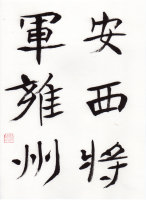 安西将
軍雍州